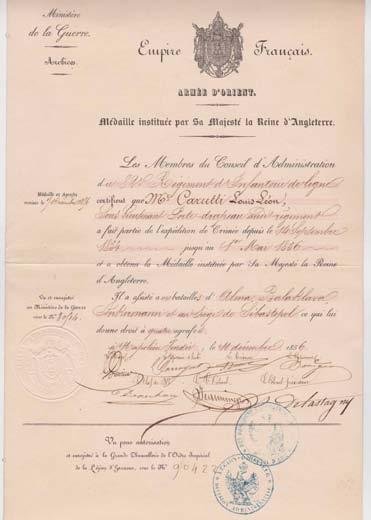 Ministère
de la Guerre.
Archives.
Empire Français.
ARMÉE D'ORIENT.
Médaille instituée par Sa Majesté la Reine d'Angleterre.
Les Membres du Conseil d'Administration
Régiment d'Infanterie de ligne
certifient que Mr Carutti Louis Léon,
Sous Lieutenant Porte drapeau
a fait partie de l'expédition de Crimée depuis le 14 Septembre
1854 jusqu'au 1er Mai 1856
et a obtenu la Médaille instituée par Sa Majesté la Reine
d'Angleterre.
Il a assisté aux batailles d'Alma Balaklava
Inkermann et au siège de Sébastopol ce qui lui
donne droit à quatre agrafes
le 11 décembre 1856
Médaille et Agrafes
Vu et enregistré
au Ministère de la Guerre
sous le No
Delastagny
Vu pour autorisation
et enregistré à la Grande Chancellerie de l'Ordre Impérial
de la Légion d'Honneur, sous le No 90422